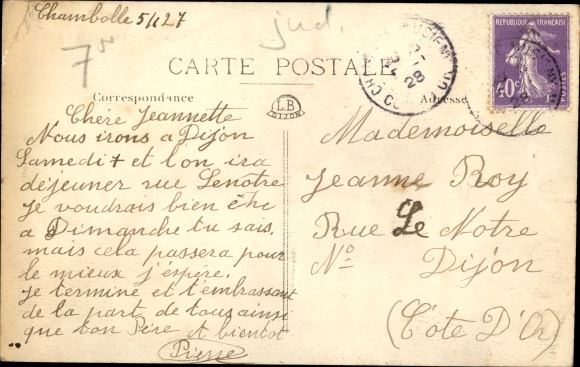 Chambolle 5/1 27
7
jud.
CARTE POSTALE
Correspondance
L.B
DIJON
Adresse
REPUBLIQUE FRANÇAISE
40c
Chère Jeannette
Nous irons a Dijon
Samedi + et l'on ira
déjeuner rue Lenotre
Je voudrais bien être
a Dimanche tu sais.
mais cela passera pour
le mieux j'éspère.
Je termine et t'embrassant
de la part de tous ainsi
que ton Père A bientot
Pierre
Mademoiselle
Jeanne Roy
Rue Le Notre
No Dijon
(Côte D'Or)